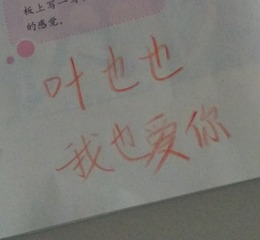 板上写一写
的感觉。
叶也也
我也爱你